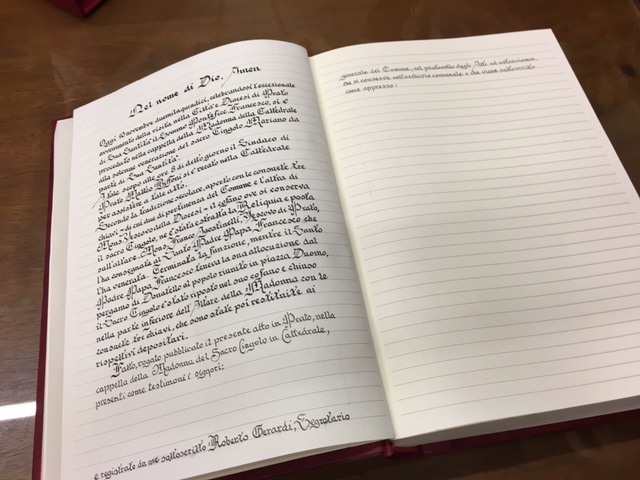 Nel nome di Dio, Amen
Oggi 10 novembre duemilaquindici, celebrandosi l'eccezionale
avvenimento della visita nella Città e Diocesi di Prato
di Sua Santità il Sommo Pontefice Francesco, si è
proceduto nella cappella della Madonna della Cattedrale
alla solenne venerazione del sacro Cingolo Mariano da
parte di Sua Santità.
A tale scopo alle ore 8 di detto giorno il Sindaco di
Prato Matteo Biffoni si è recato nella Cattedrale
per assistere a tale atto.
Secondo la tradizione secolare, aperto con le consuete tre
chiavi, di cui due di pertinenza del Comune e l'altra di
Mons. Vescovo della Diocesi il cofano ove si conserva
il sacro Cingolo, ne è stata estratta la Reliquia e posta
sull'altare. Mons. Franco Agostinelli, Vescovo di Prato,
l'ha consegnata al Santo Padre Papa Francesco che
l'ha venerata. Terminata la funzione, mentre il Santo
Padre Papa Francesco teneva la sua allocuzione dal
pergamo di Donatello al popolo riunito in piazza Duomo,
il Sacro Cingolo è stato riposto nel suo cofano e chiuso
nella parte inferiore dell'Altare della Madonna con le
consuete tre chiavi, che sono state poi restituite ai
rispettivi depositari.
Fatto, rogato pubblicato il presente atto in Prato, nella
cappella della Madonna del Sacro Cingolo in Cattedrale,
presenti come testimoni i signori:
e registrato da me sottoscritto Roberto Gerardi, Segretario
generale del Comune, nel protocollo degli Atti ad
che si conserva nell'archivio comunale e che viene sottoscritto
come appresso: